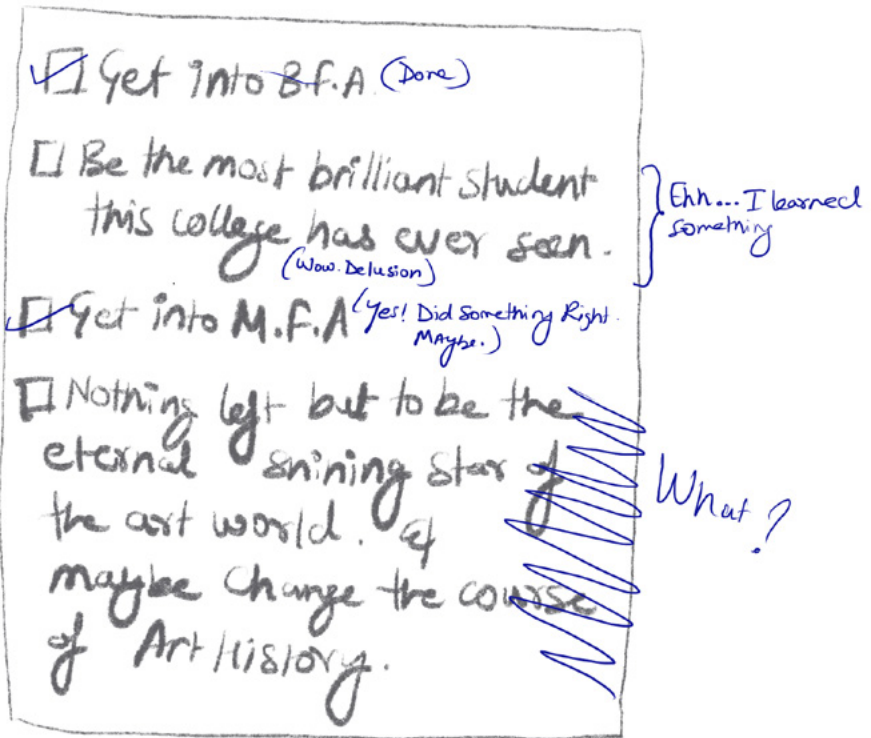 Get into B.F.A (Done)
Be the most brilliant student
this college has ever seen.
(Wow. Delusion)
Ehh... I learned
something
Get into M.F.A (Yes! Did Something Right.
Maybe.)
Nothing left but to be the
eternal shining star of
the art world. &
maybe change the course
of Art History.
What?